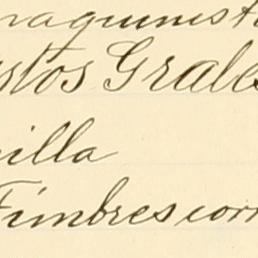 maquinist
stos Grales
illa
Timbres corr